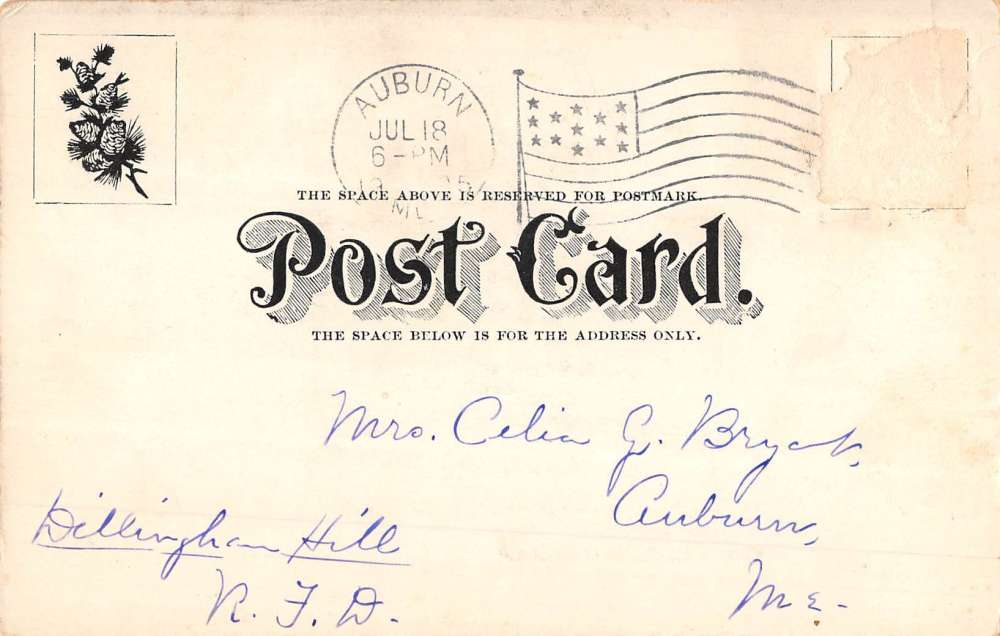 AUBURN
JUL 18
6-PM
ME.
THE SPACE ABOVE IS RESERVED FOR POSTMARK.
Post Card.
THE SPACE BELOW IS FOR THE ADDRESS ONLY.
Mrs. Celia G. Bryant,
Auburn,
Dillingham Hill
R. F. D.
Me-